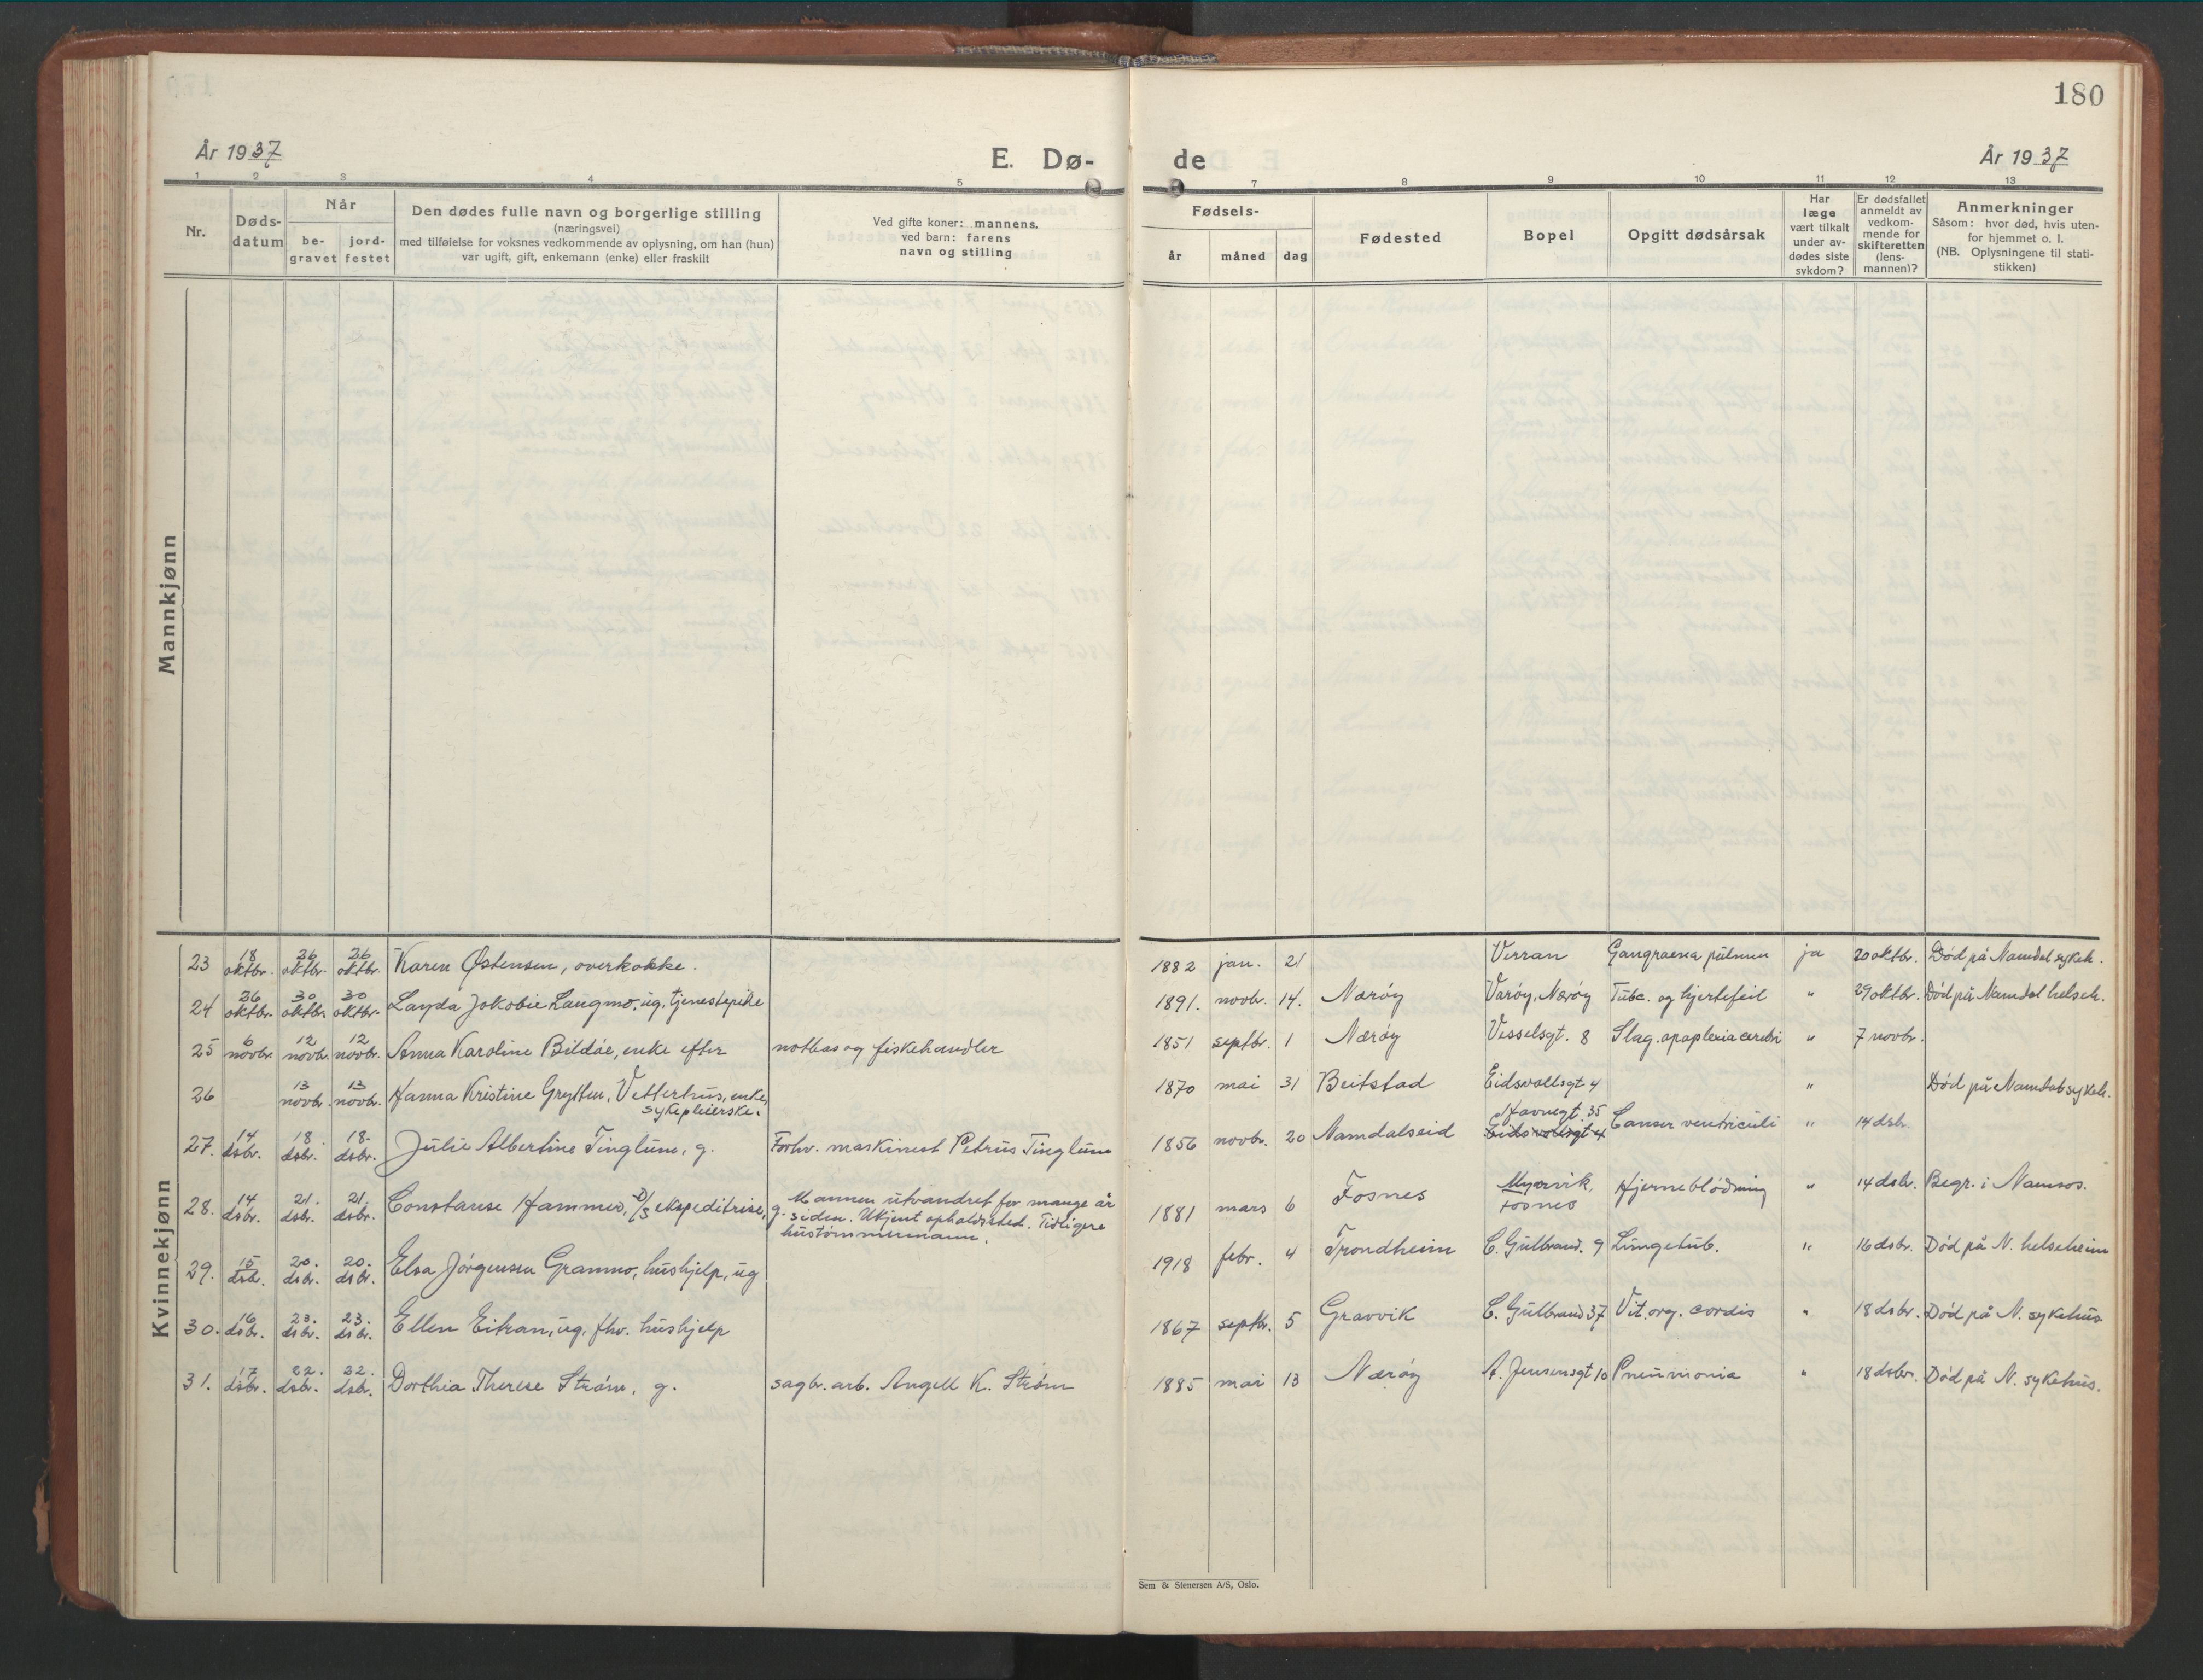 180
År 1937
E. Dø-
de
År 1937
1 2 3 4 5 7 8 9 10 11 12 13
Nr.
Døds-
datum
Når
be-
gravet
jord-
festet
Den dødes fulle navn og borgerlige stilling
(næringsvei)
med tilføielse for voksnes vedkommende av oplysning, om han (hun)
var ugift, gift, enkemann (enke) eller fraskilt
Ved gifte koner: mannens,
ved barn: farens
navn og stilling
Fødsels-
år måned dag
Fødested
Bopel
Opgitt dødsårsak
Har
læge
vært tilkalt
under av-
dødes siste
sykdom?
Er dødsfallet
anmeldt av
vedkom-
mende for
skifteretten
(lens-
mannen)?
Anmerkninger
Såsom: hvor død, hvis uten-
for hjemmet o. l.
(NB. Oplysningene til stati-
stikken)
Mannkjønn
Kvinnekjønn
23 18 oktbr. 26 oktbr. 26 oktbr. Karen Østensen, overkokke. 1882 jan. 21 Verran Gangraena pulmon ja 20 oktbr. Død på Namdal sykeh.
24 26 oktbr. 30 oktbr. 30 oktbr. Layda Jokobie Laugmo. ug. tjenestepike 1891. novbr. 14. Nærøy Varøy, Nærøy Tubc. og hjertefeil " 29 oktbr. Død på Namdal helseh.
25 6 novbr. 12 novbr. 12 novbr. Anna Karoline Bildøe, enke efter notbas og fiskehandler 1851 septbr. 1 Nærøy Vesselsgt. 8 Slag. apoplexia cerebri " 7 novbr.
26 13 novbr. 13 novbr. Hanna Kristine Grytten, Vetterhus, enke, 1870 mai 31 Beitstad Eidsvollsgt 4 " Død på Namdal sykeh.
sykepleierske.
27. 14 dsbr. 18 dsbr. 18 dsbr. Julie Albertine Tinglum, g. Forhv. maskinist Petrus Tinglum 1856 novbr. 20 Namdalseid Havnegt. 35 Cancer ventriculi " 14 dsbr.
Eidsvollsgt 4
28. 14 dsbr. 21. dsbr. 21. dsbr. Constanse Hammer, D/S ekspeditrise, g. Mannen utvandret for mange år 1881 mars 6 Fosnes Myrvik, Hjerneblødning " 14 dsbr. Begr. i Namsos.
siden. Ukjent opholdssted. Tidligere Fosnes
hustømmermann.
29. 15 dsbr. 20. dsbr. 20. dsbr. Elsa Jørgensen Grannes, hushjelp, ug 1918 febr. 4 Trondheim C. Gulbrand. 9 Lungetub. " 16 dsbr. Død på N. helseheim
30. 16 dsbr. 23. dsbr. 23. dsbr. Ellen Eitran, ug, fhv. hushjelp 1867 septbr. 5 Gravvik C. Gulbrand 37 Vit. org. cordis " 18 dsbr. Død på N. sykehus
31. 17 dsbr. 22. dsbr. 22. dsbr. Dorthia Therese Strøm, g. sagbr. arb. Angell K. Strøm 1885 mai 13 Nærøy A. Jensensgt 10 Pneumonia " 18 dsbr. Død på N. sykehus.
Sem & Stenersen A/S, Oslo.